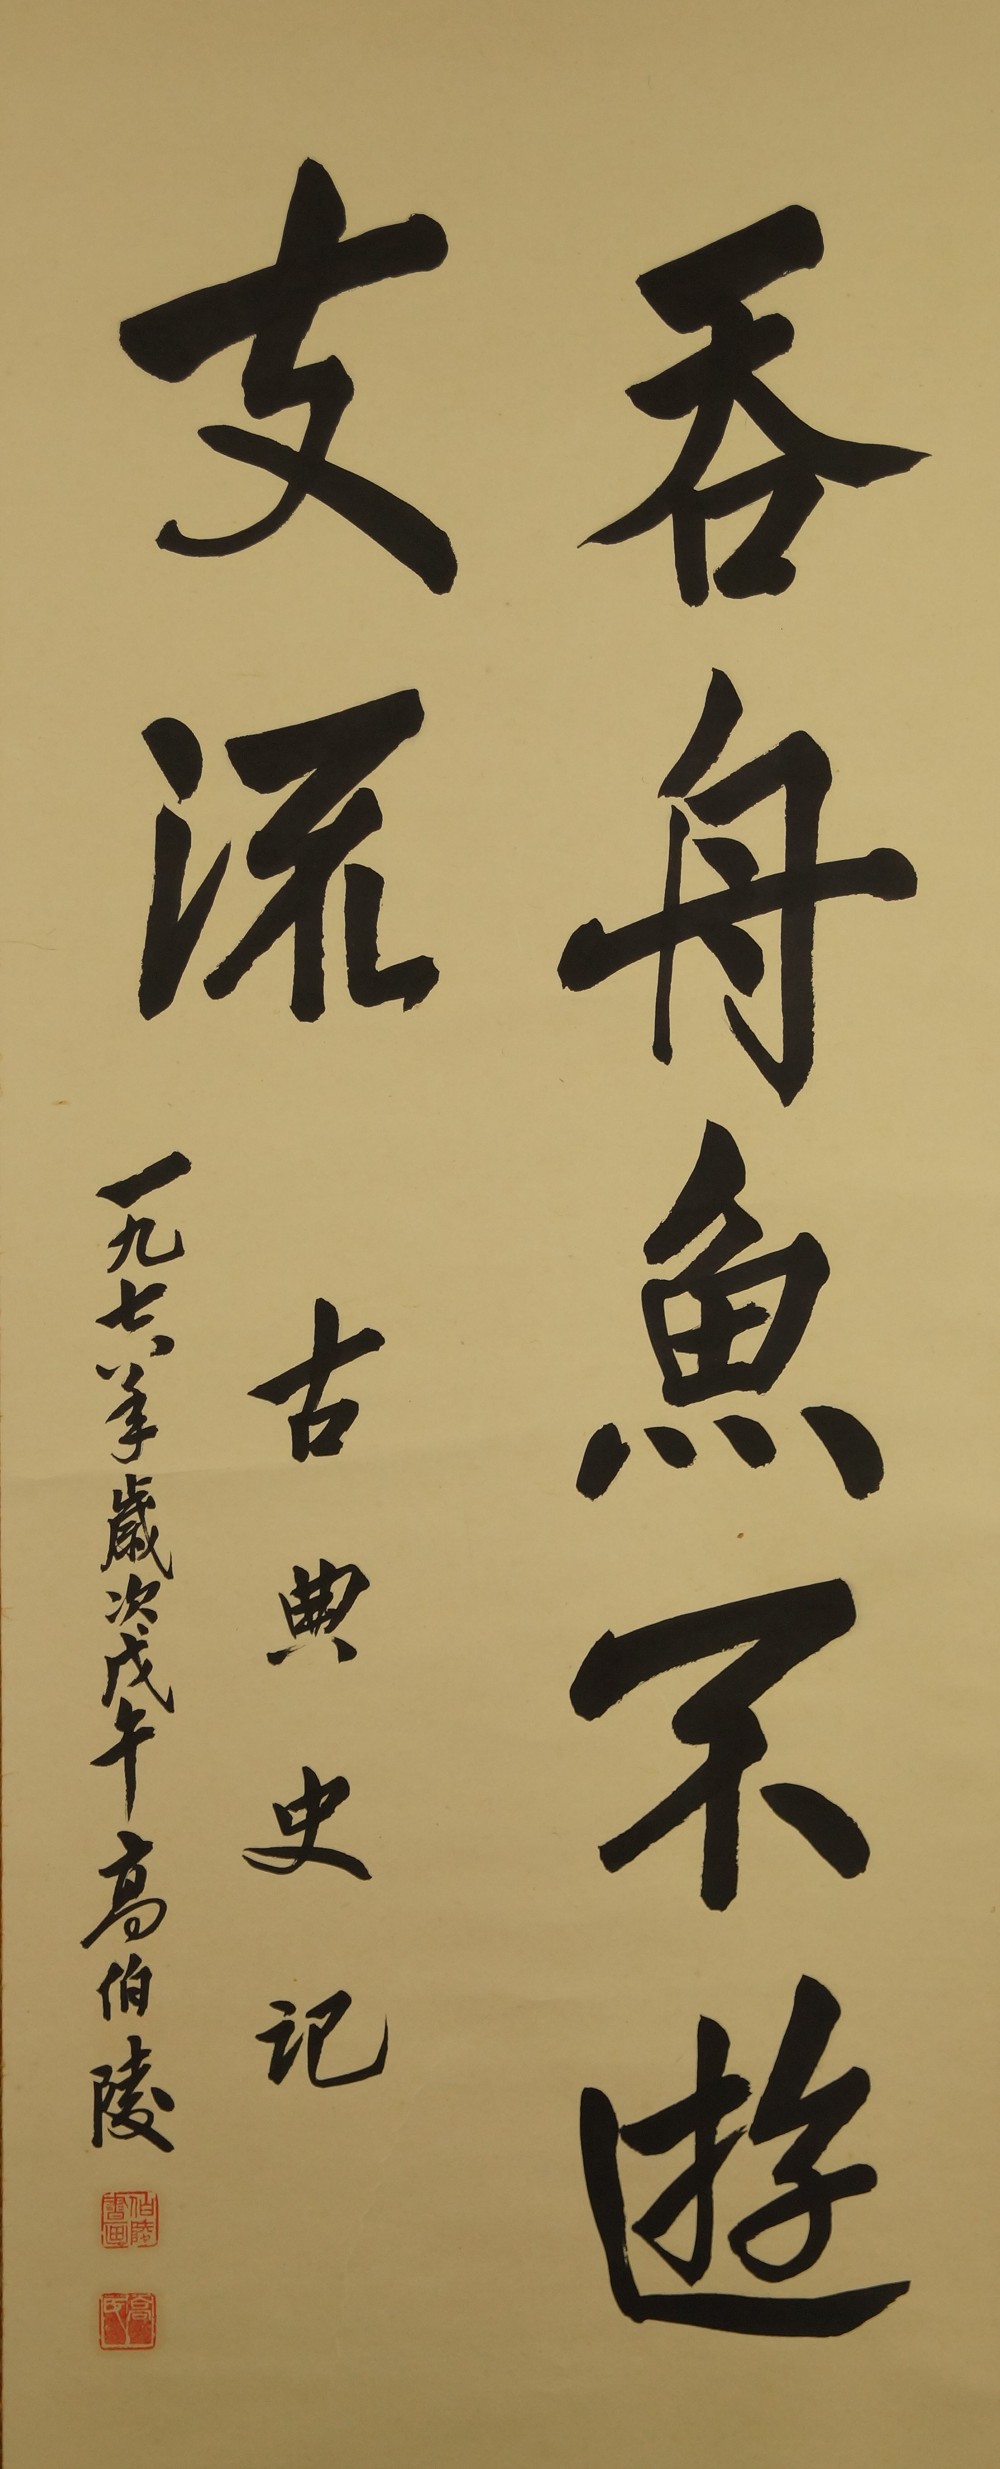 吞舟魚不遊
支流
古典史記
一九七八年歲次戊午高伯陵
伯陵書画